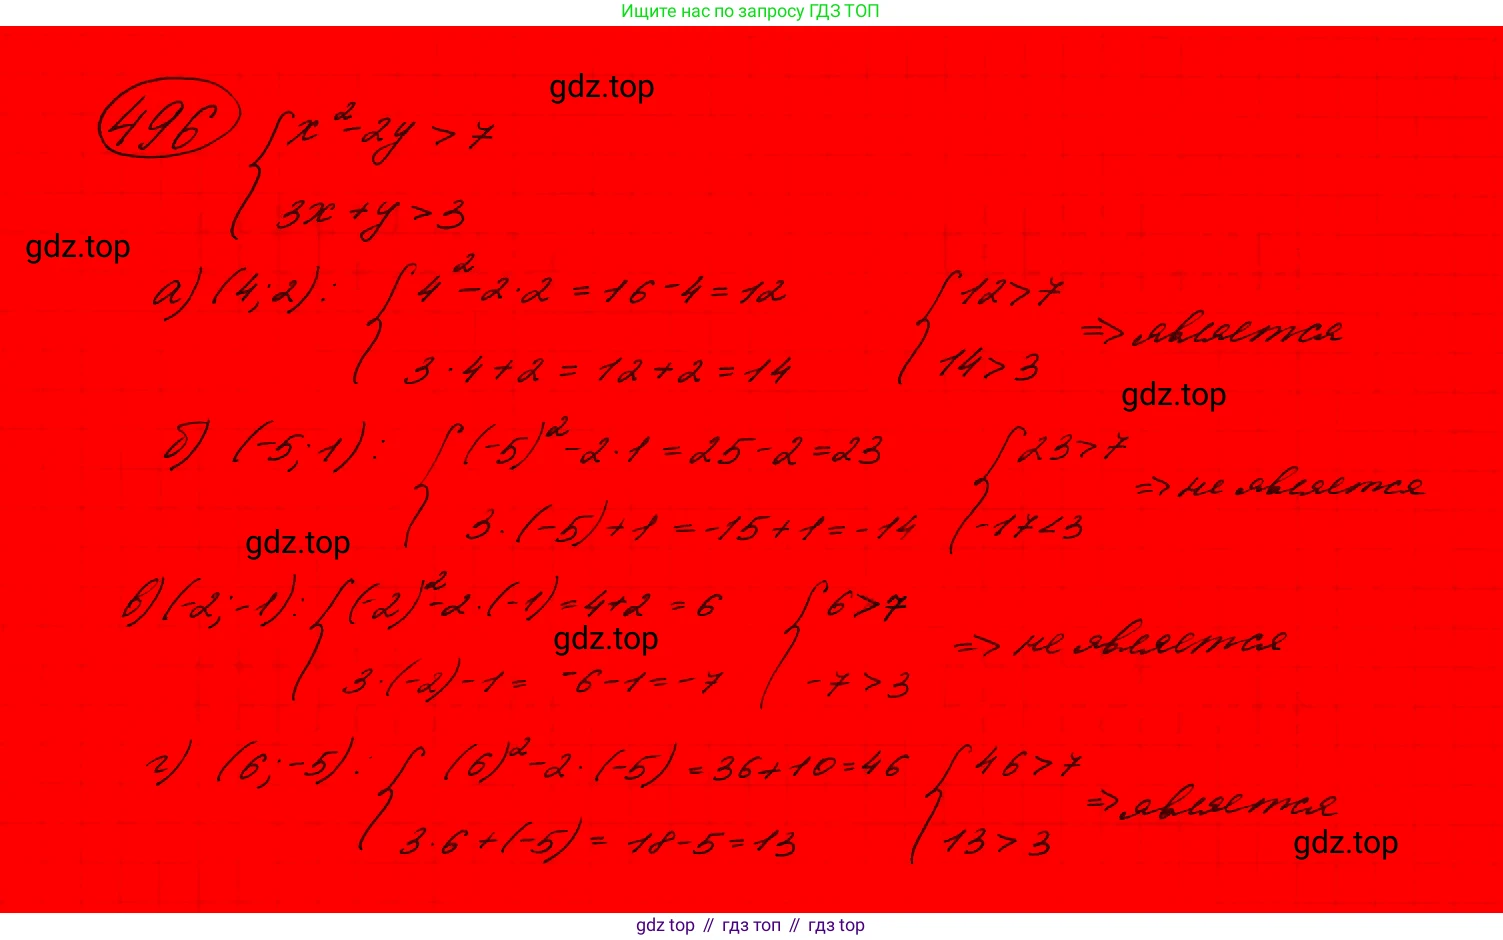 Ищите нас по запросу ГДЗ ТОП
gdz.top
496 { x² - 2y > 7
3x + y > 3
gdz.top
а) (4; 2): { 4² - 2·2 = 16 - 4 = 12 { 12 > 7
3·4 + 2 = 12 + 2 = 14 14 > 3 => является
gdz.top
б) (-5; 1): { (-5)² - 2·1 = 25 - 2 = 23 { 23 > 7
3·(-5) + 1 = -15 + 1 = -14 -17 < 3 => не является
gdz.top
в) (-2; -1): { (-2)² - 2·(-1) = 4 + 2 = 6 { 6 > 7
gdz.top
3·(-2) - 1 = -6 - 1 = -7 -7 > 3 => не является
г) (6; -5): { (6)² - 2·(-5) = 36 + 10 = 46 { 46 > 7
3·6 + (-5) = 18 - 5 = 13 13 > 3 => является
gdz.top
gdz top // гдз топ // gdz top